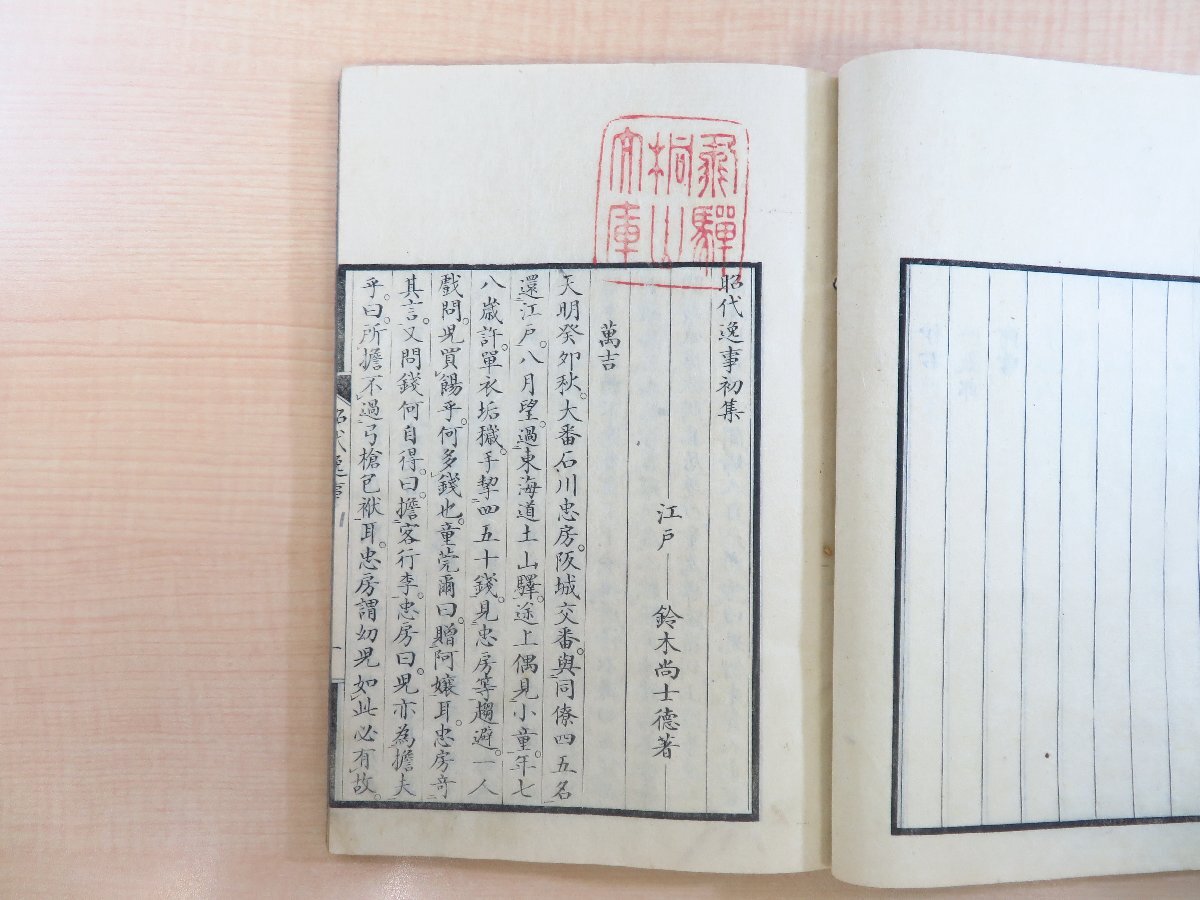 昭代逸事初集
江戸 鈴木尚士德著
萬吉
天明癸卯秋。大番石川忠房。阪城交番。與同僚四五名
還江戸。八月望。過東海道土山驛。途上偶見小童。年七
八歳許。單衣垢穢。手挈四五十錢。見忠房等趨避。一人
戲問。児買餳乎。何多錢也。童莞爾曰。贈阿孃耳。忠房奇
其言。又問錢何自得。曰。擔客行李。忠房曰。児亦為擔夫
乎。曰。所擔不過弓槍包袱耳。忠房謂幼児如此必有故。
昭代逸事
飛驒
桐山
文庫